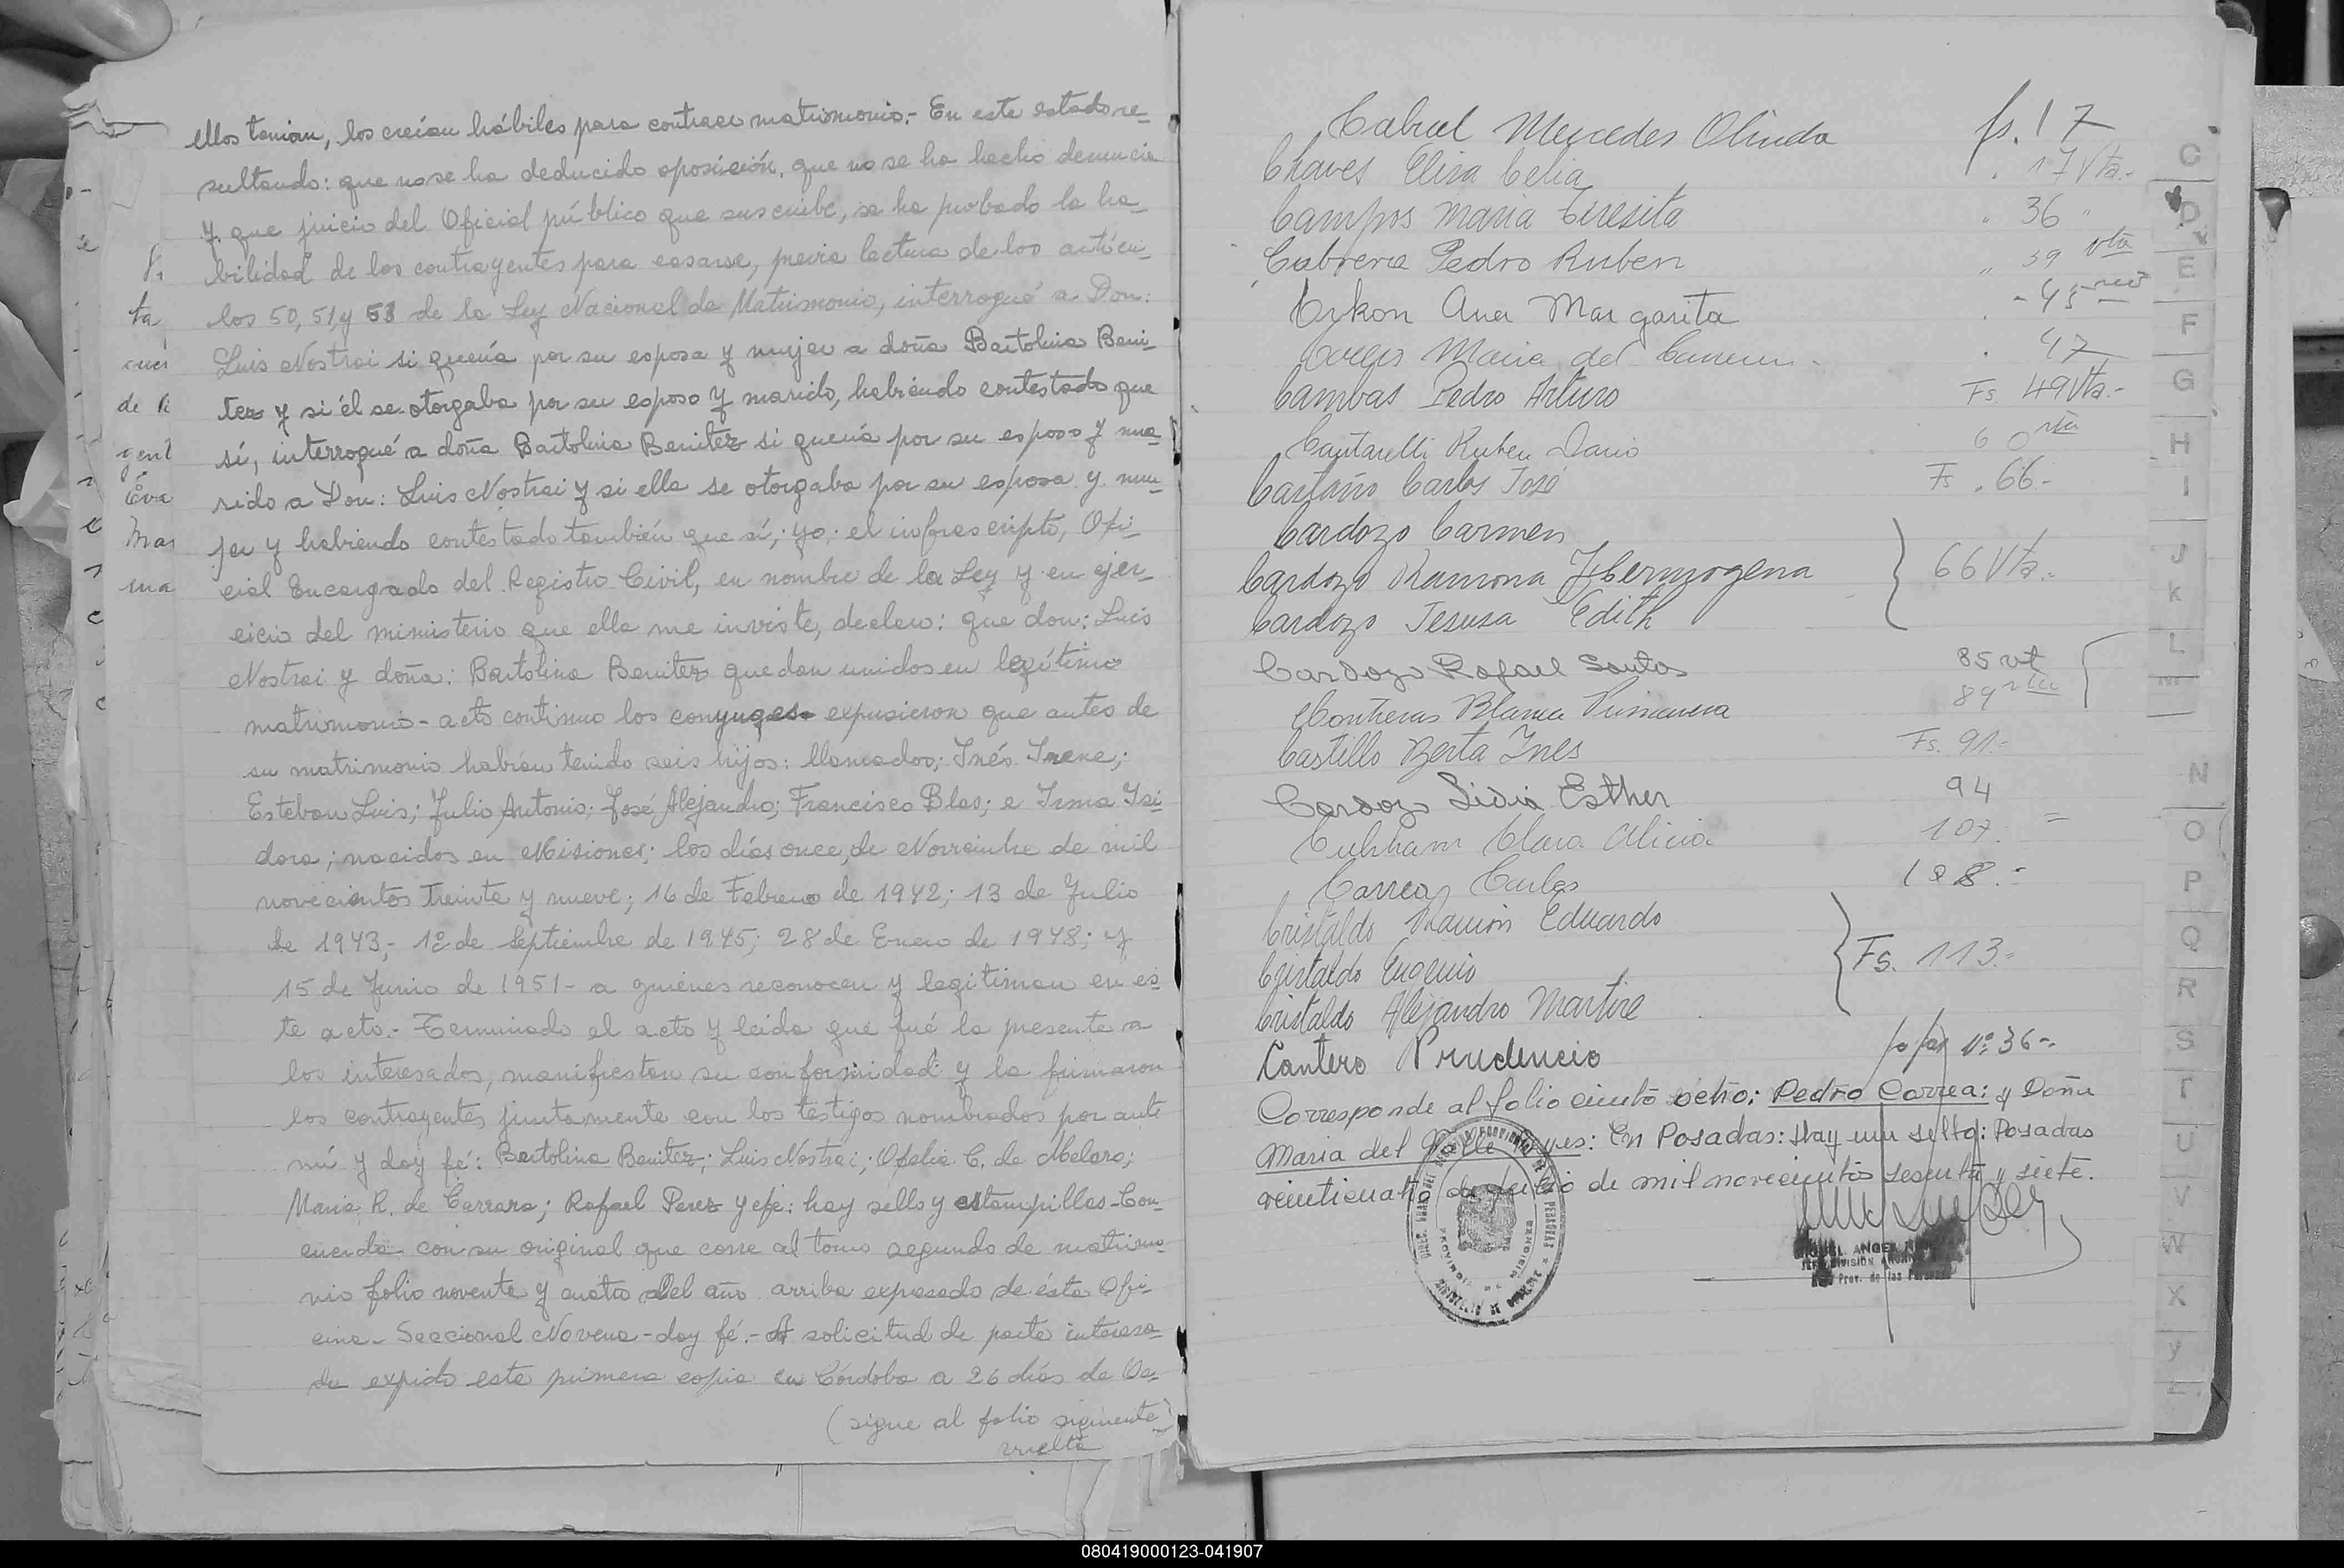 ellos tenian, los creían hábiles para contraer matrimonio.- En este estado re-
sultando: que no se ha deducido oposición, que no se ha hecho denuncia
y que juicio del Oficial público que suscribe, se ha probado la ha-
bilidad de los contrayentes para casarse, previa lectura de los artícu-
los 50, 51 y 53 de la Ley Nacional de Matrimonio, interrogué a Don:
Luis Nostrai si quería por su esposa y mujer a doña Bartolina Beni-
tez y si él se otorgaba por su esposo y marido, habiendo contestado que
sí, interrogué a doña Bartolina Benitez si quería por su esposo y ma-
rido a Don: Luis Nostrai y si ella se otorgaba por su esposa y mu-
jer y habiendo contestado también que sí; yo: el infrascripto, Ofi-
cial Encargado del Registro Civil, en nombre de la Ley y en ejer-
cicio del ministerio que ella me inviste, declaro: que don: Luis
Nostrai y doña: Bartolina Benitez quedan unidos en legítimo
matrimonio - acto continuo los conyuges expusieron que antes de
su matrimonio habían tenido seis hijos: llamados; Inés Irene;
Esteban Luis; Julio Antonio; José Alejandro; Francisco Blas; e Irma Isi-
dora; nacidos en Misiones; los días once, de Noviembre de mil
novecientos treinta y nueve; 16 de Febrero de 1942; 13 de Julio
de 1943; 1º de Septiembre de 1945; 28 de Enero de 1948; y
15 de Junio de 1951 - a quienes reconocen y legitiman en es-
te acto.- Terminado el acto y leida que fué la presente a
los interesados, manifiestan su conformidad y la firmaron
los contrayentes juntamente con los testigos nombrados por ante
mí y doy fé: Bartolina Benitez; Luis Nostrai; Ofelia C. de Melaro;
Maria R. de Carrara; Rafael Perez y efe: hay sello y estampillas - Con-
cuerda con su original que corre al tomo segundo de matrimo-
nio folio noventa y cuatro del año arriba expresado de ésta Ofi-
cina - Seccional Novena - doy fé.- A solicitud de parte interesa-
da expido este primera copia en Córdoba a 26 días de Oc-
(sigue al folio siguiente
vuelta
ta
de
gent
Eva
Mar
ma
Cabral Mercedes Olinda fs. 17
Chaves Elisa Celia " 17 Vta.-
Campos Maria Teresita " 36 "
Cabrera Pedro Ruben " 39 vta
Ana Margarita - 45
Maria del Carmen - 47
Cambas Pedro Arturo Fs. 49 Vta.-
Cantarelli Ruben Dario 60 vta
Cartaño Carlos José Fs. 66.-
Cardozo Carmen
Cardozo Ramona Hermogena 66 Vta.-
Cardozo Jesusa Edith
Cardozo Rafael Santos 85 vt
Contreras Blanca Primavera 89 vta
Castillo Berta Ines Fs. 91.-
Cardozo Lidia Esther 94
Clara Alicia 107.
Correa Carlos 108.-
Cristaldo Ramón Eduardo
Cristaldo Eugenio Fs. 113.-
Cristaldo Alejandro Martire
Cantero Prudencio Nº 36-.
Corresponde al folio ciento ocho: Pedro Correa: y Doña
Maria del Valle Reyes: En Posadas: Hay un sello: Posadas
veinticuatro de Julio de mil novecientos sesenta y siete.
C
D
E
F
G
H
I
J
K
L
M
N
O
P
Q
R
S
T
U
V
W
X
Y
Z
080419000123-041907